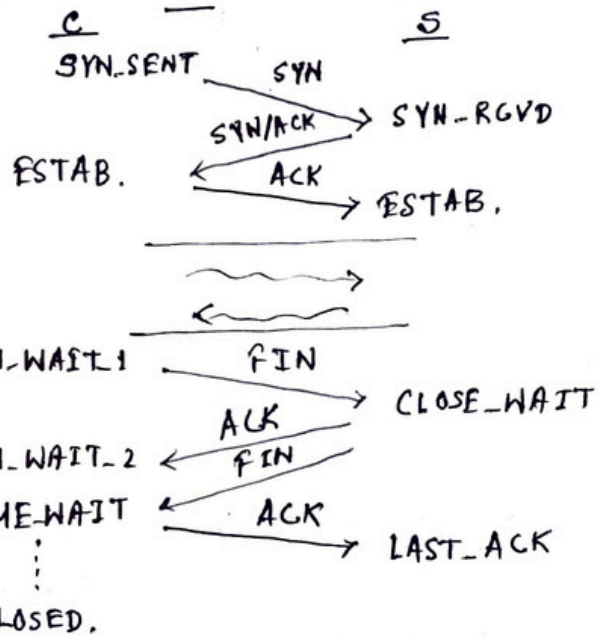 C S
SYN_SENT SYN
SYN_RCVD
SYN/ACK
ESTAB. ACK
ESTAB.
_WAIT_1 FIN
CLOSE_WAIT
ACK
_WAIT_2 FIN
ME_WAIT ACK
LAST_ACK
LOSED.